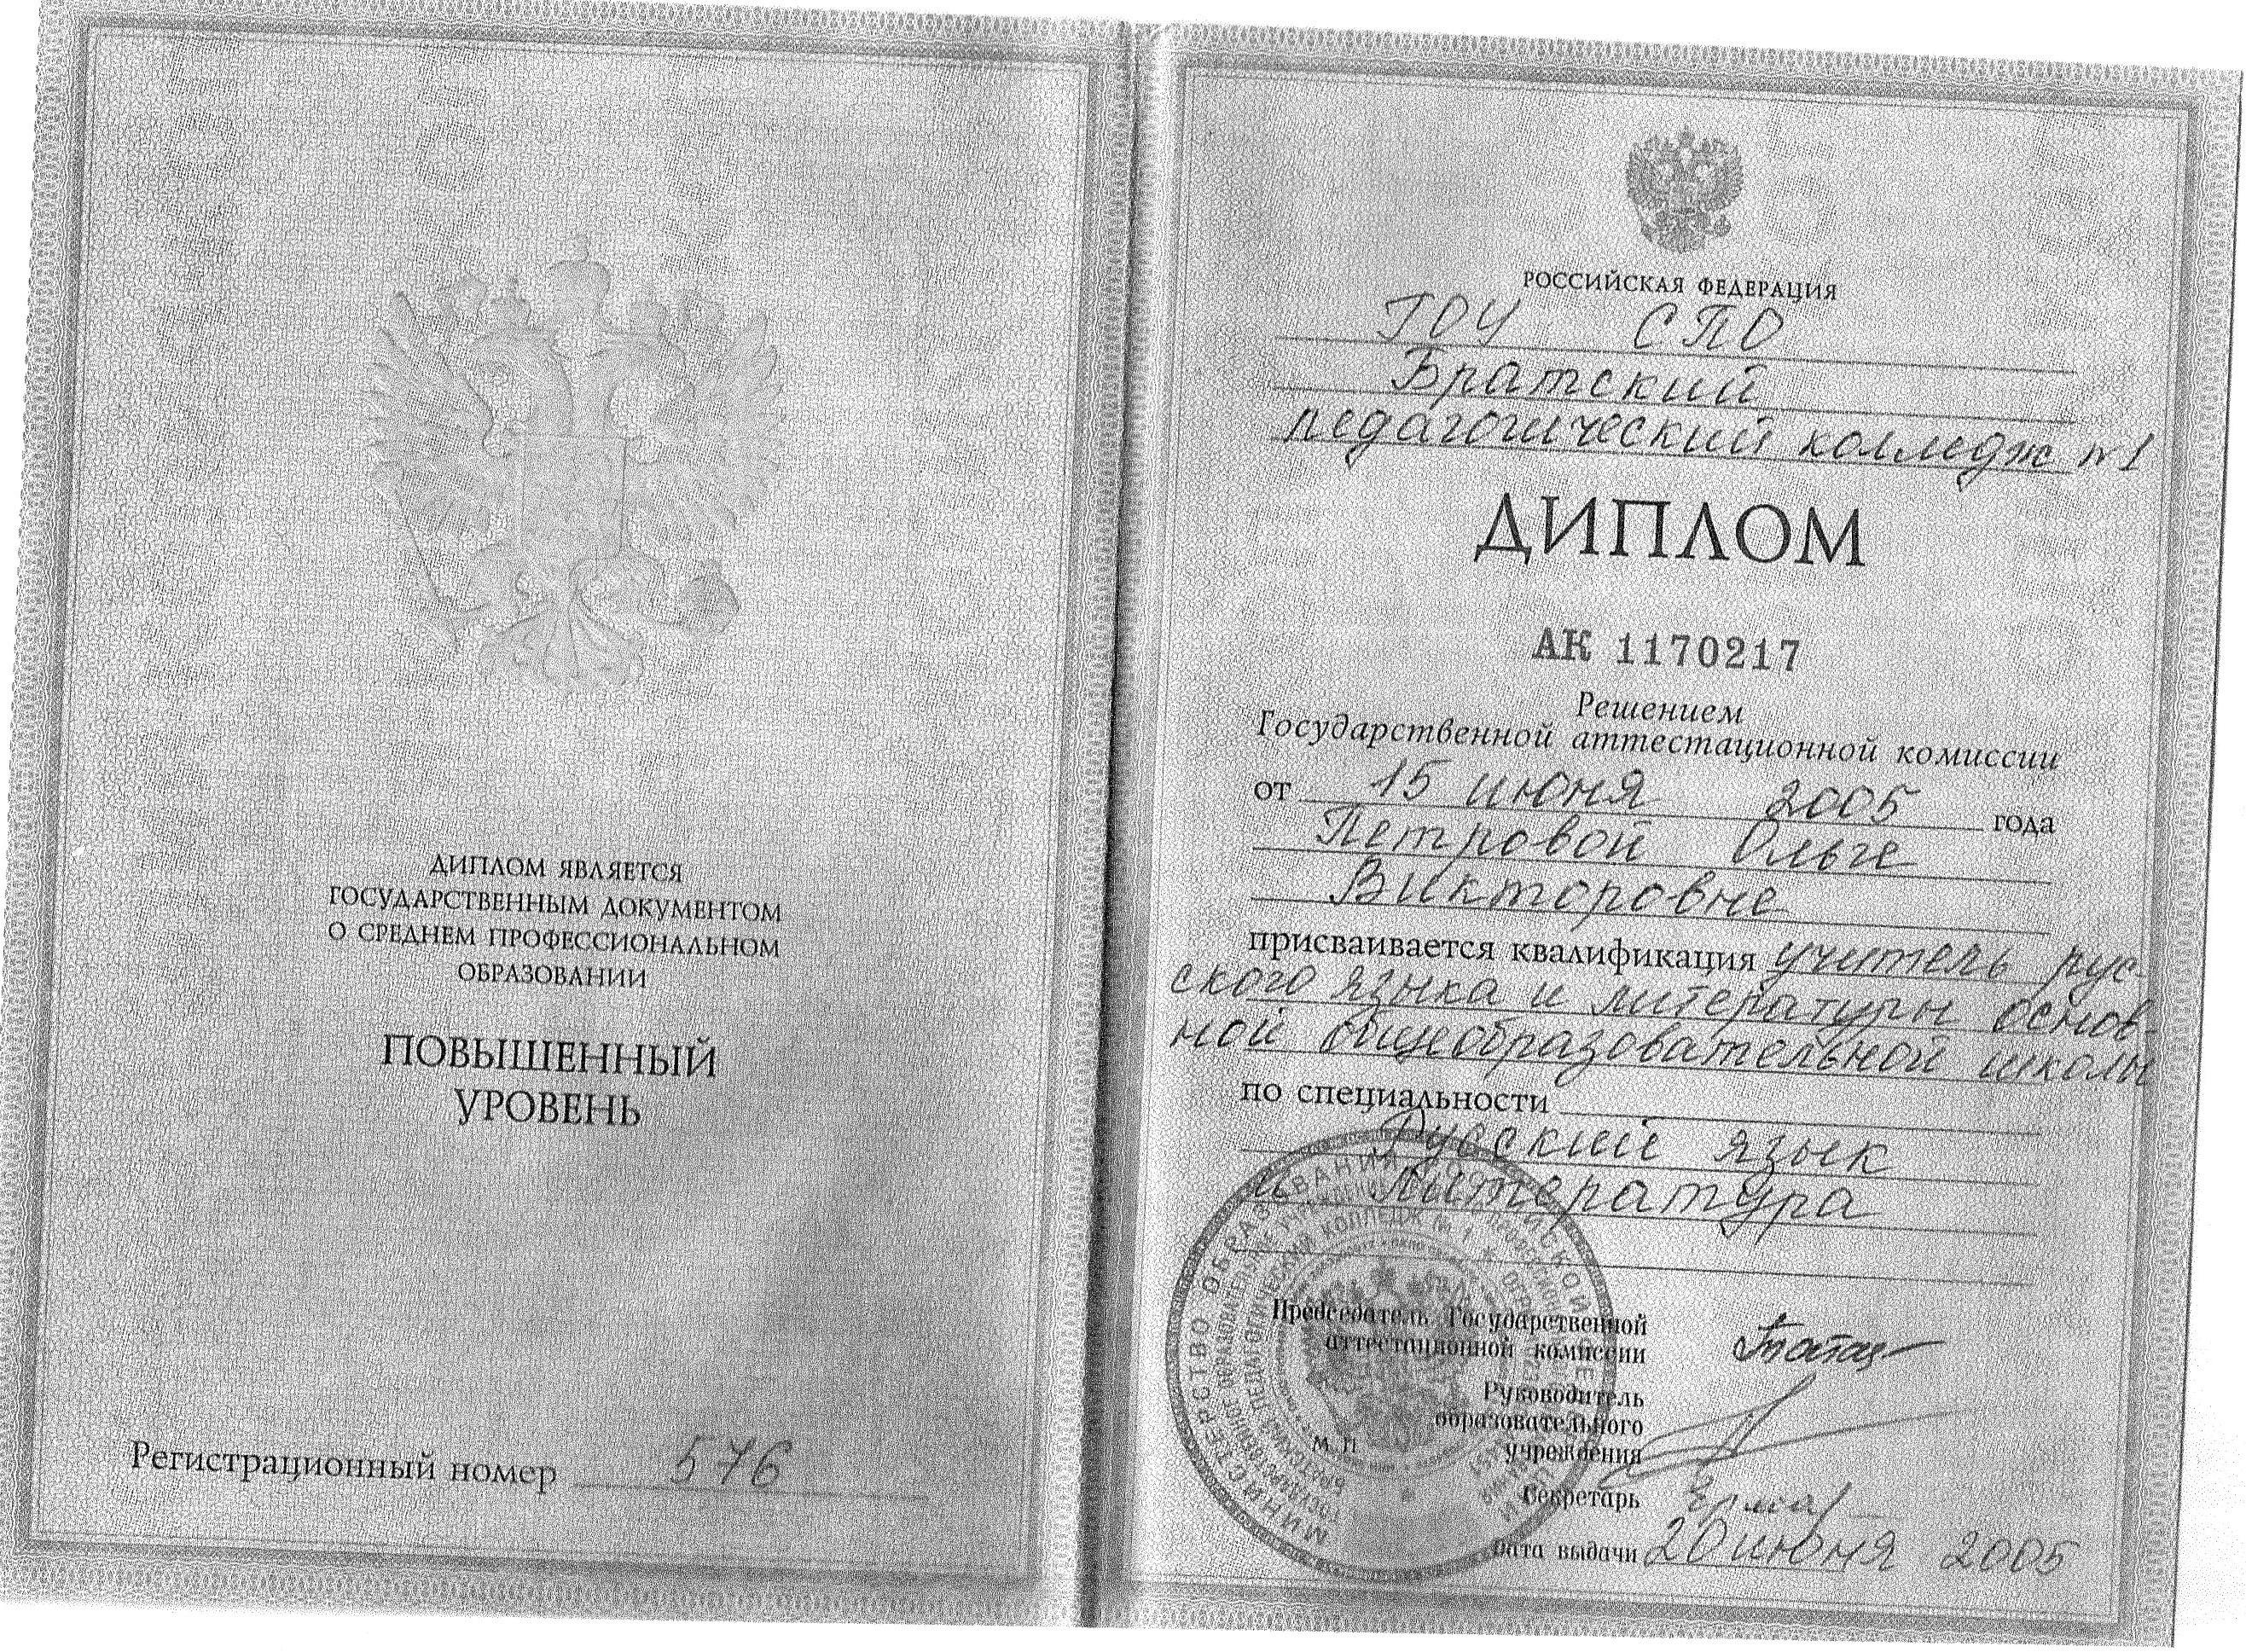 ДИПЛОМ ЯВЛЯЕТСЯ
ГОСУДАРСТВЕННЫМ ДОКУМЕНТОМ
О СРЕДНЕМ ПРОФЕССИОНАЛЬНОМ
ОБРАЗОВАНИИ
ПОВЫШЕННЫЙ
УРОВЕНЬ
Регистрационный номер 576
РОССИЙСКАЯ ФЕДЕРАЦИЯ
ГОУ СПО
Братский
педагогический колледж №1
ДИПЛОМ
АК 1170217
Решением
Государственной аттестационной комиссии
от 15 июня 2005 года
Петровой Ольге
Викторовне
присваивается квалификация учитель рус-
ского языка и литературы основ-
ной общеобразовательной школы
по специальности
Русский язык
и литература
Председатель Государственной
аттестационной комиссии
Руководитель
образовательного
учреждения
М.П.
Секретарь
Дата выдачи 20 июня 2005
МИНИСТЕРСТВО ОБРАЗОВАНИЯ РОССИЙСКОЙ
БРАТСКИЙ ПЕДАГОГИЧЕСКИЙ КОЛЛЕДЖ № 1